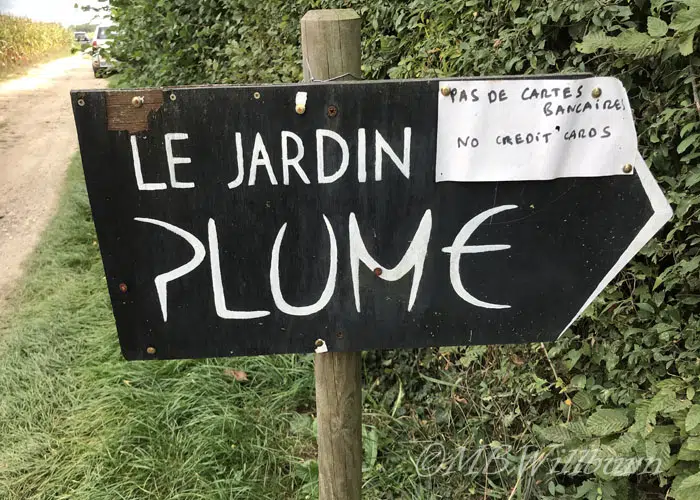 LE JARDIN
PLUME
PAS DE CARTES
BANCAIRES
NO CREDIT CARDS
©MBWillburn